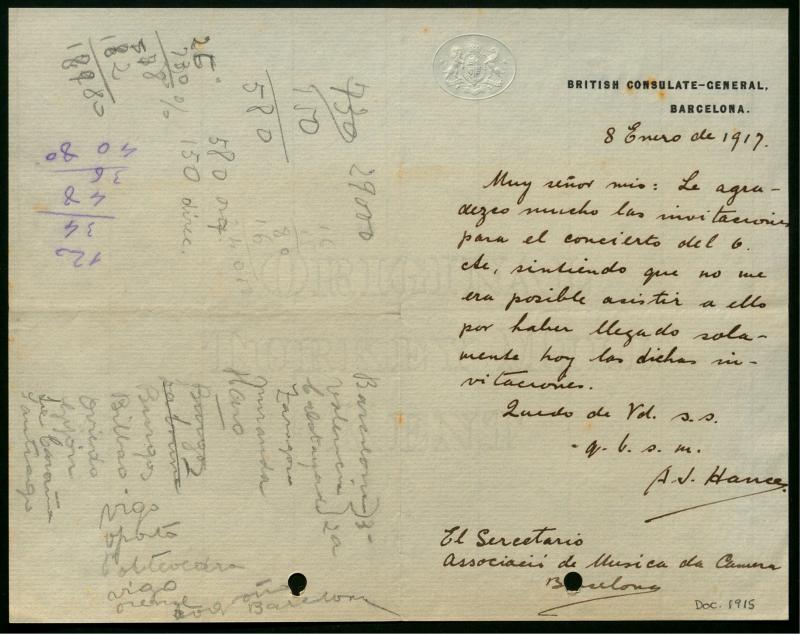 BRITISH CONSULATE-GENERAL,
BARCELONA.
8 Enero de 1917.
Muy señor mio: Le agra-
dezco mucho las invitaciones
para el concierto del 6.
cte, sintiendo que no me
era posible asistir a ello
por haber llegado sola-
mente hoy las dichas in-
vitaciones.
Quedo de Vd. s.s.
q. b. s. m.
A. J. Hance
El Sercetario
Associació de Musica da Camera
Barcelona
Doc. 1915
730
150
580
29000
26
730 %
182
18980
580
150 direc.
40
80
36
48
34
12
Barcelona
Valencia
Zaragoza
Miranda
Haro
Burgos
Bilbao
Oviedo
Gijón
La Coruña
Santiago
Vigo
Oporto
Pontevedra
Vigo
Orense
Barcelona